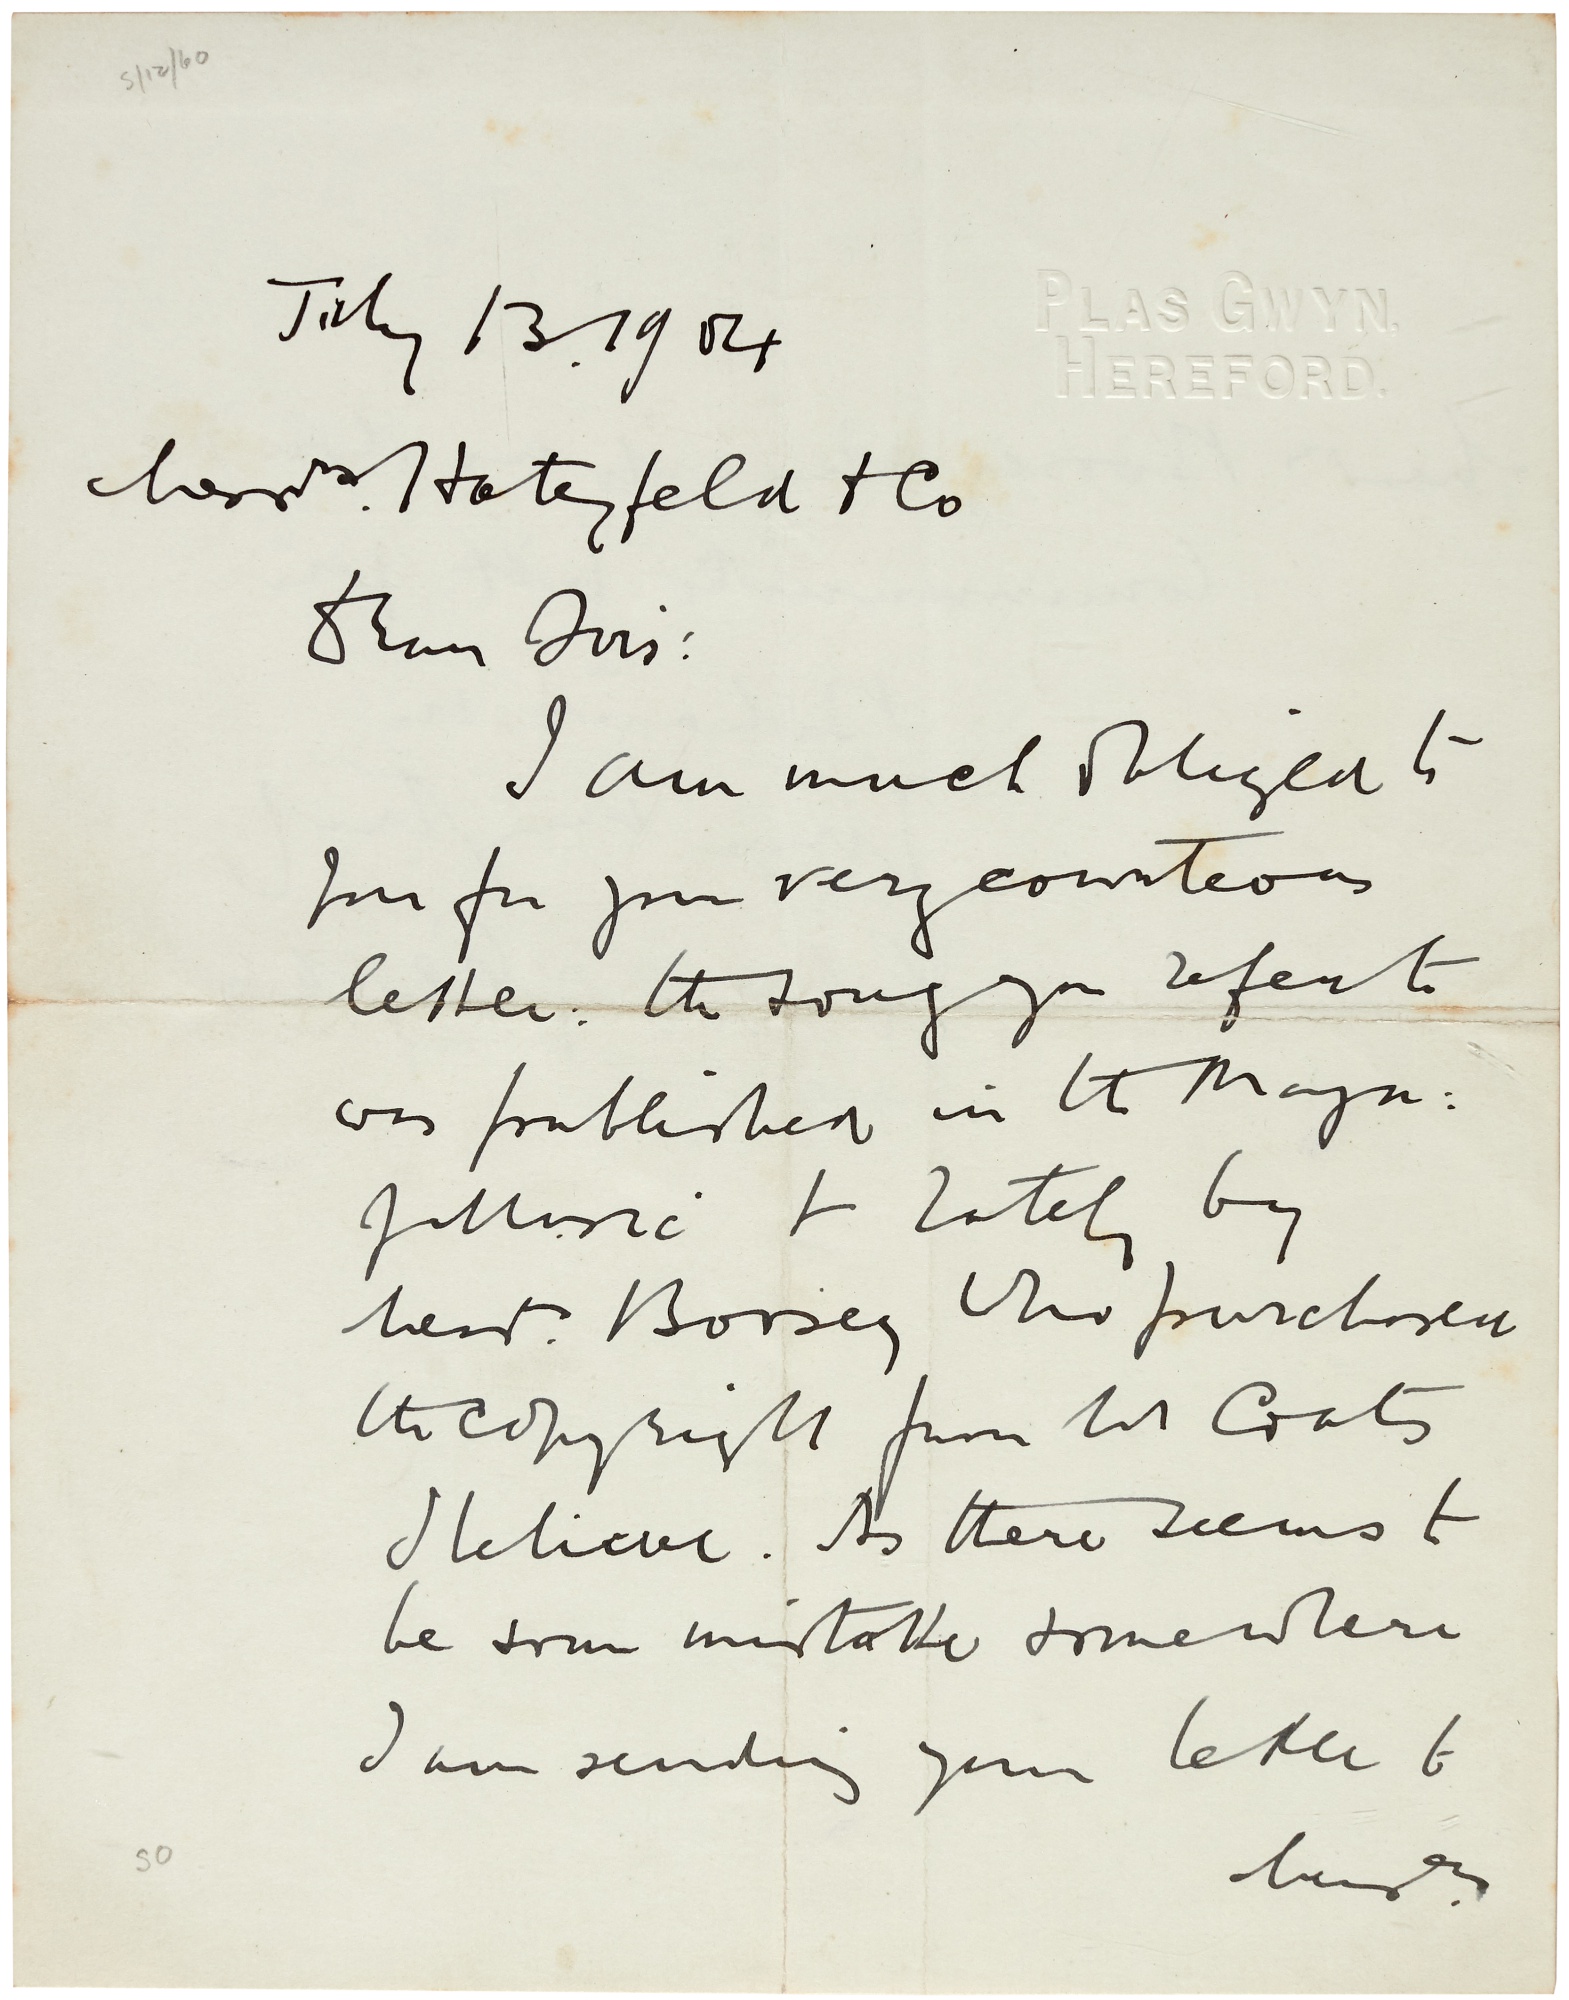 5/12/60
PLAS GWYN.
HEREFORD.
July 13. 1904
Messrs. Hatzfeld & Co
Dear Sirs:
I am much obliged to
you for your very courteous
letter: the song you refer to
was published in the Magzn:
of Music & lately by
Messrs. Boosey who purchased
the copyright from Mr Coats
I believe. As there seems to
be some mistake somewhere
I am sending your letter to
Messrs.
50